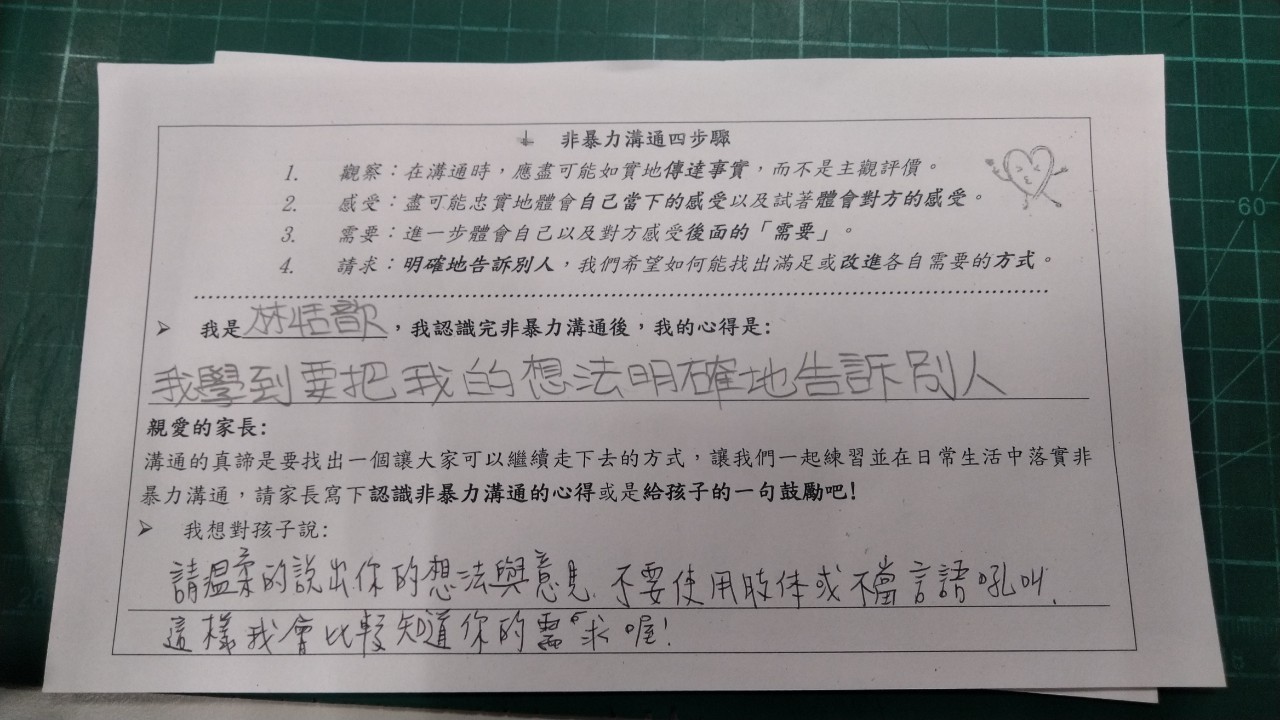 非暴力溝通四步驟
1. 觀察：在溝通時，應盡可能如實地傳達事實，而不是主觀評價。
2. 感受：盡可能忠實地體會自己當下的感受以及試著體會對方的感受。
3. 需要：進一步體會自己以及對方感受後面的「需要」。
4. 請求：明確地告訴別人，我們希望如何能找出滿足或改進各自需要的方式。
➤ 我是林恬歆，我認識完非暴力溝通後，我的心得是:
我學到要把我的想法明確地告訴別人
親愛的家長:
溝通的真諦是要找出一個讓大家可以繼續走下去的方式，讓我們一起練習並在日常生活中落實非
暴力溝通，請家長寫下認識非暴力溝通的心得或是給孩子的一句鼓勵吧!
➤ 我想對孩子說:
請溫柔的說出你的想法與意見、不要使用肢体或不當言語吼叫、
這樣我會比較知道你的需求喔!